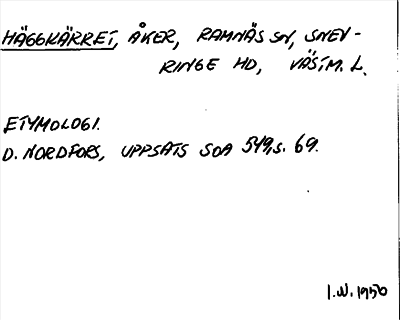 HÄGGKÄRRET, ÅKER, RAMNÄS SN, SNEV-
RINGE HD, VÄSTM. L.
ETYMOLOGI.
D. NORDFORS, UPPSATS SOA 549, S. 69.
I.W. 1950